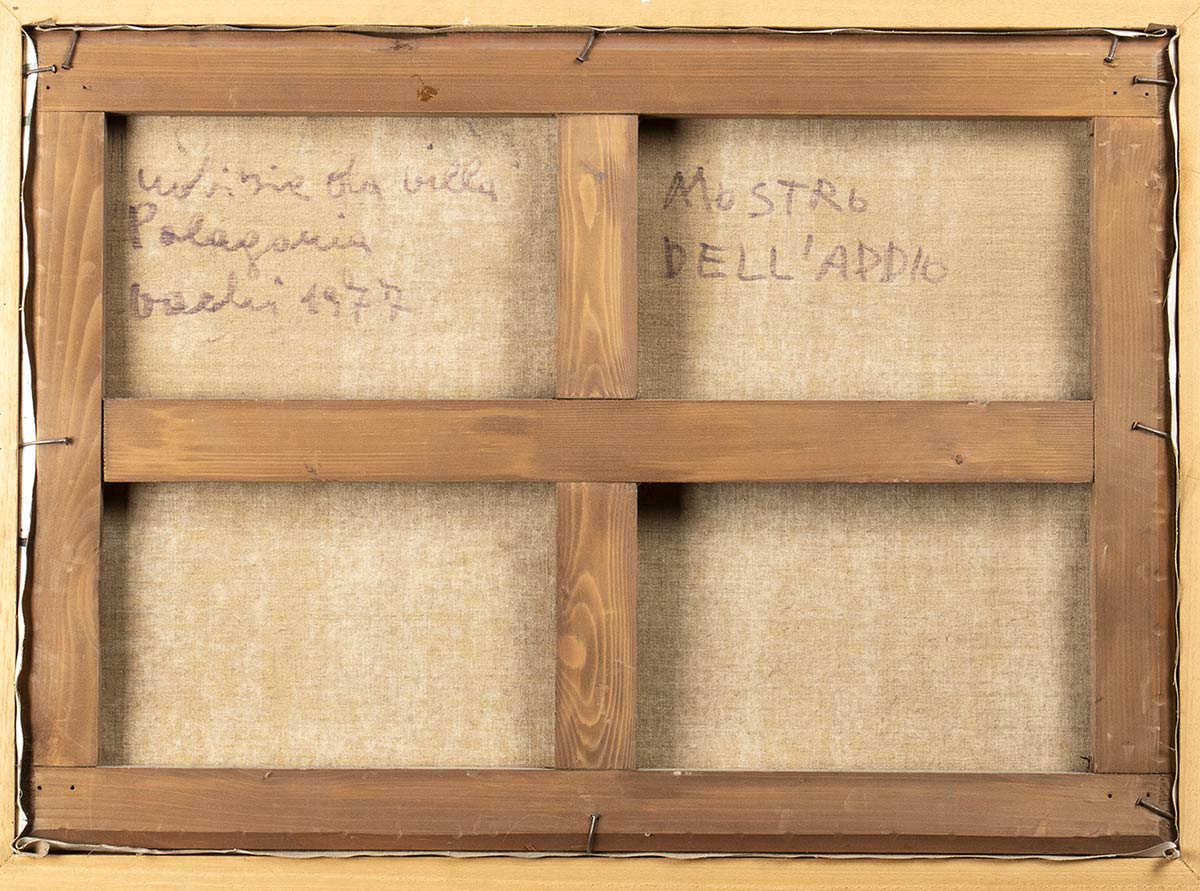 notizie da villa
Palagonia
vacchi 1977
MOSTRO
DELL'ADDIO